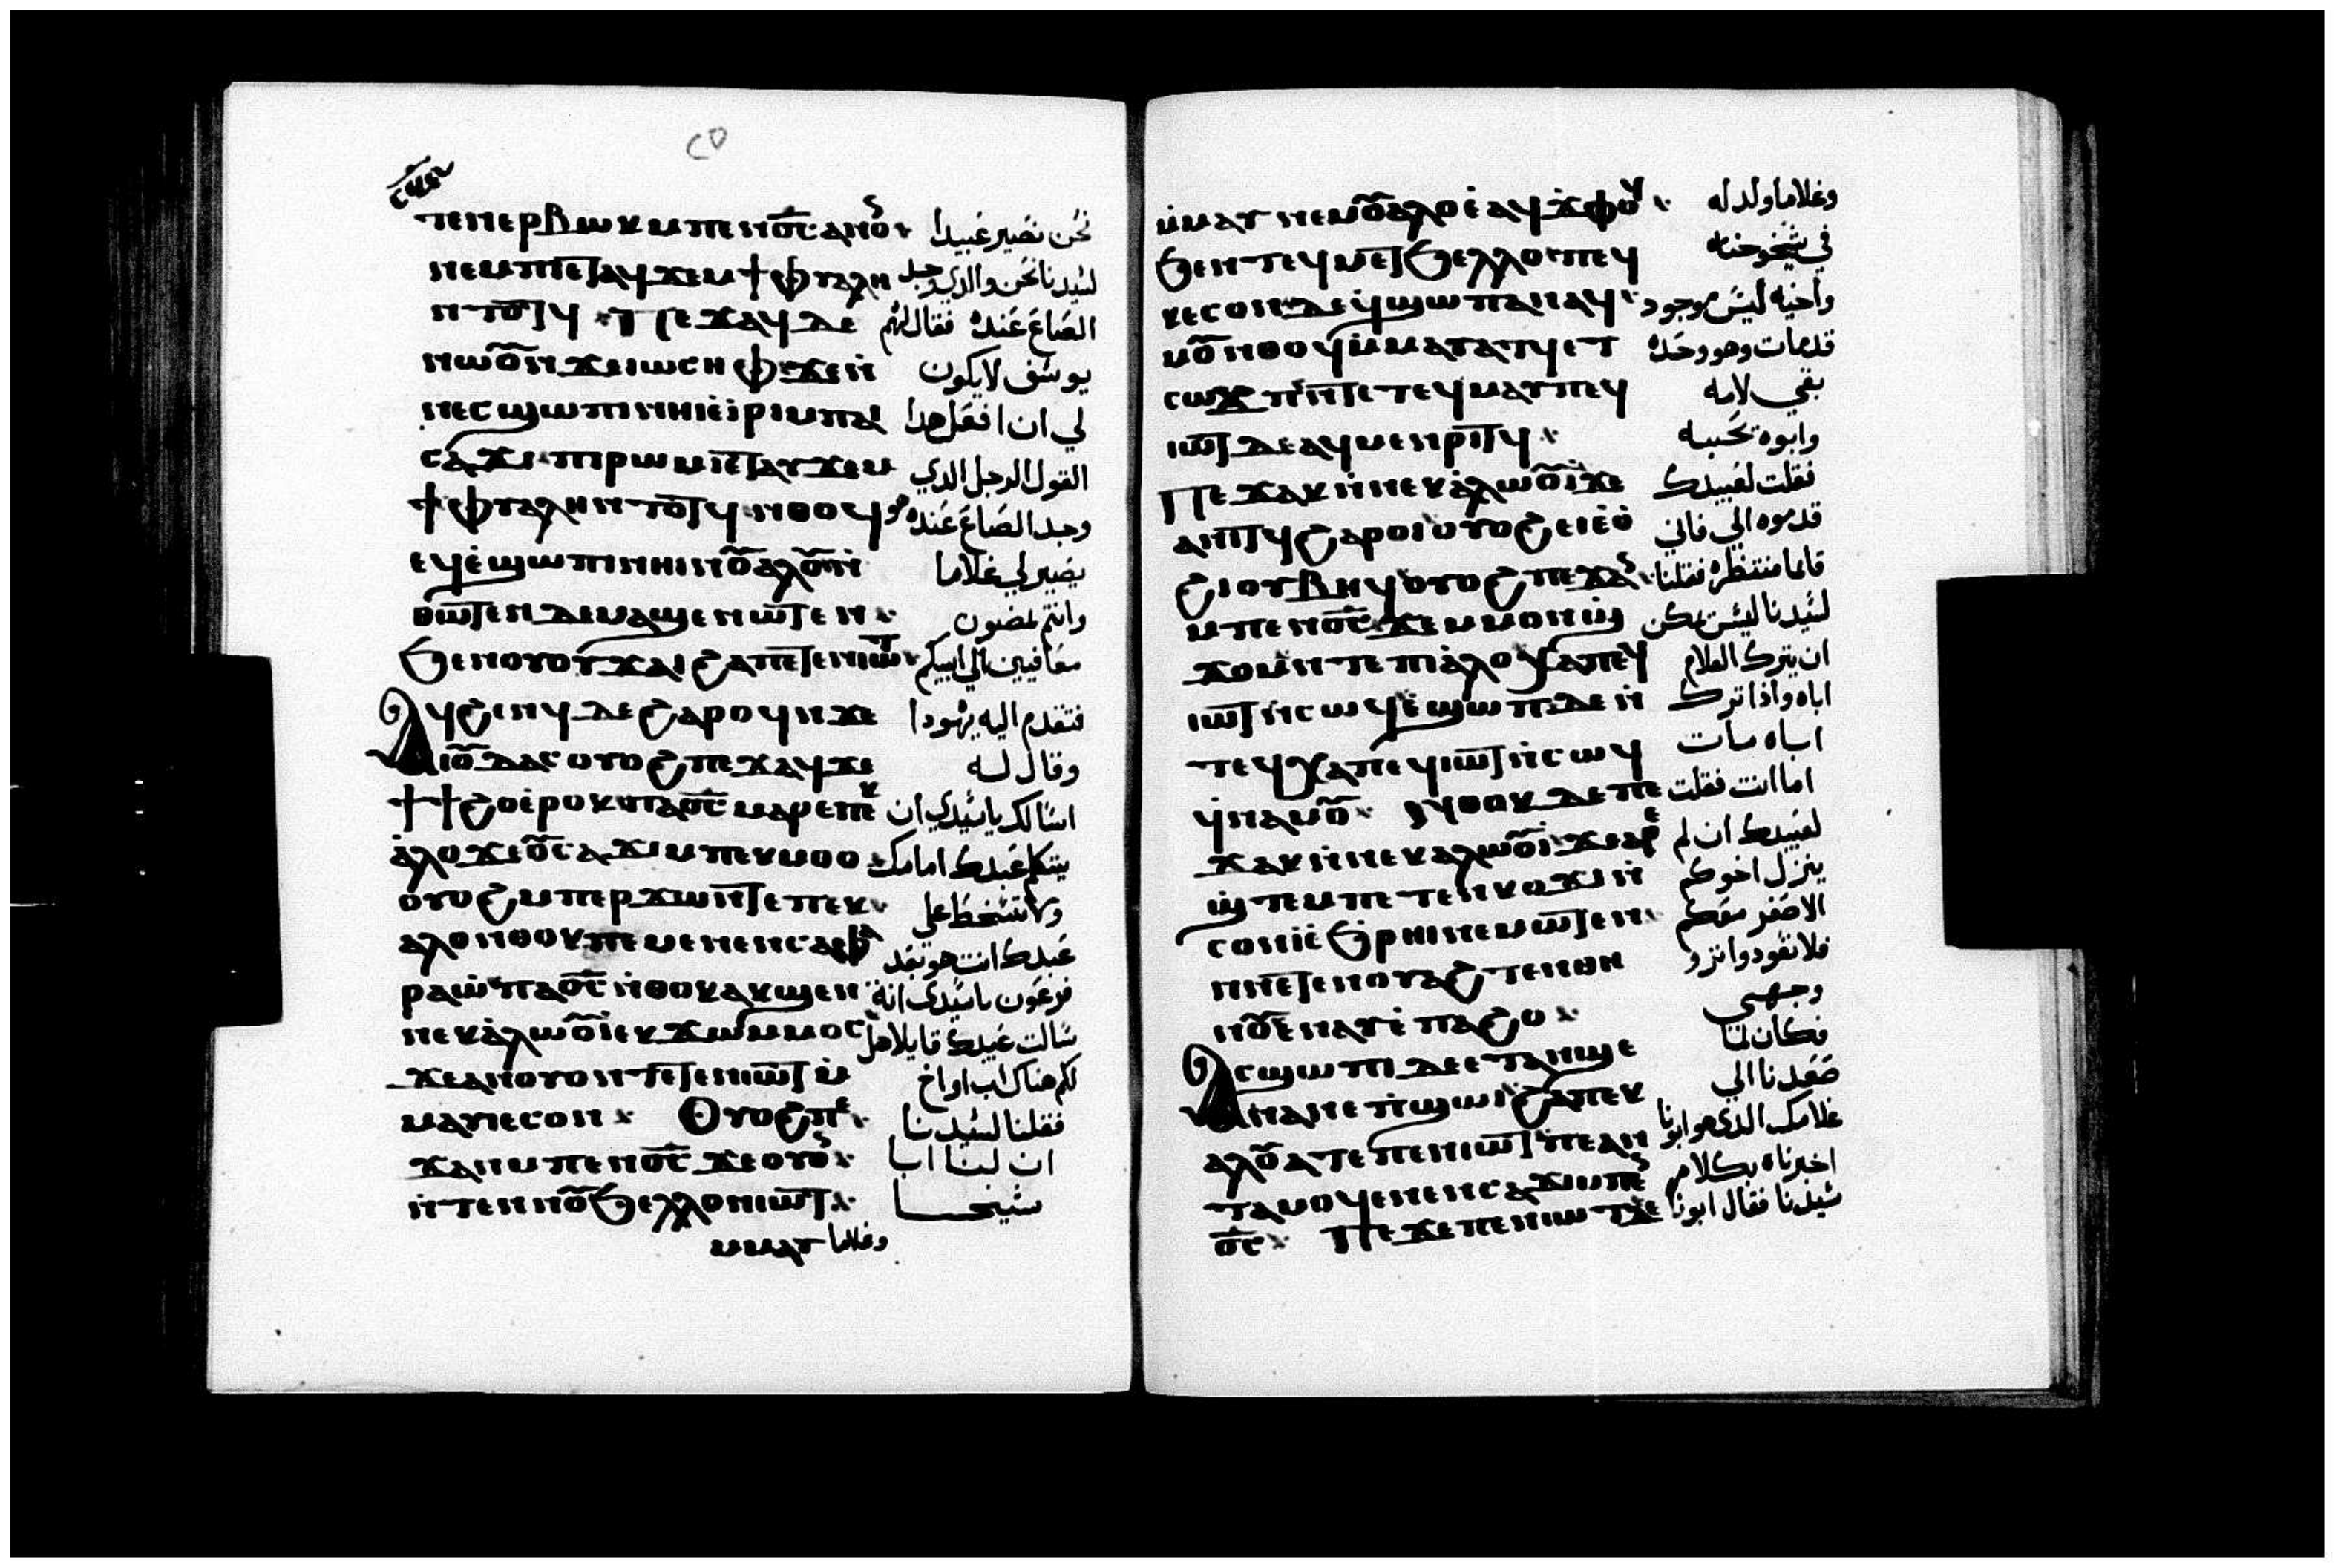 ⲧⲉⲛⲉⲣⲃⲱⲕ ⲙⲡⲉⲛⲟ̅ⲥ̅ ⲁⲛⲟ نحن نصير عبيدا
ⲛⲉⲙ ⲡⲓⲉⲧⲁⲩϫⲉⲙ ϯⲫⲩⲁⲗⲏ لسيدنا نحن والذي وجد
ⲛⲧⲟⲧϥ Ⲡⲉϫⲁϥ ⲇⲉ الصاع عنده فقال لهم
ⲛⲱⲟⲩⲛϫⲉⲓⲱⲥⲏⲫ ϫⲉⲛ يوسف لا يكون
ⲛⲉⲥϣⲱⲡⲓ ⲛⲏⲓ ⲉⲓⲣⲓ ⲙⲡⲁⲓ لي ان افعل هدا
ⲥⲁϫⲓ ⲡⲓⲣⲱⲙⲓ ⲉⲧⲁⲩϫⲉⲙ القول الرجل الدي
ϯⲫⲩⲁⲗⲏ ⲛⲧⲟⲧϥ ⲛⲑⲟϥ وجد الصاع عنده هو
ⲉϥⲉϣⲱⲡⲓ ⲛⲏⲓ ⲛⲟⲩⲁⲗⲟⲩ ⲛ يصير لي غلاما
ⲑⲱⲧⲉⲛ ⲇⲉ ⲙⲁϣⲉⲛⲱⲧⲉⲛ وانتم تمضون
ϧⲉⲛ ⲟⲩⲟⲩϫⲁⲓ ϩⲁ ⲡⲉⲧⲉⲛⲓⲱⲧ معافيين الي ابيكم
Ⲁϥϩⲓⲧϥ ⲇⲉ ϩⲁⲣⲟϥ ⲛϫⲉ فتقدم اليه يهودا
ⲓⲟⲩⲇⲁⲥ ⲟⲩⲟϩ ⲡⲉϫⲁϥ ϫⲉ وقال له
ϯϯϩⲟ ⲉⲣⲟⲕ ⲡⲁⲟ̅ⲥ̅ ⲙⲁⲣⲉⲡⲉⲕ اسالك يا سيدي ان
ⲁⲗⲟⲩ ϫⲉⲟⲩⲥⲁϫⲓ ⲙⲡⲉⲕⲙⲑⲟ يتكلم عبدك امامك
ⲟⲩⲟϩ ⲙⲡⲉⲣϫⲱⲛⲧ ⲉⲡⲉⲕ ولا تسخط علي
ⲁⲗⲟⲩ ⲛⲑⲟⲕ ⲡⲉ ⲙⲉⲛⲉⲛⲥⲁ ⲫⲁ عبدك انت هو بعد
ⲣⲁⲱ ⲡⲁⲟ̅ⲥ̅ ⲛⲑⲟⲕ ⲁⲕϣⲉⲛ فرعون يا سيدي انت
ⲛⲉⲕⲁⲗⲱⲟⲩⲓ ⲉⲕϫⲱ ⲙⲙⲟⲥ سالت عبيدك قايلا هل
ϫⲉ ⲁⲛ ⲟⲩⲟⲛⲧⲉⲧⲉⲛ ⲓⲱⲧ ⲙ لكم هناك اب او اخ
ⲙⲁⲩ ⲓⲉ ⲥⲟⲛ Ⲟⲩⲟϩ ⲡⲉ فقلنا لسيدنا
ϫⲁⲛ ⲙⲡⲉⲛⲟ̅ⲥ̅ ϫⲉ ⲟⲩⲟ ان لنا ابا
ⲛⲧⲉⲛ ⲛⲟⲩϧⲉⲗⲗⲟ ⲛⲓⲱⲧ شيخا
ⲙⲙⲁⲩ وغلاما
ⲙⲙⲁⲩ ⲛⲉⲙ ⲟⲩⲁⲗⲟⲩ ⲉⲁϥϫⲫⲟϥ وغلاما ولد له
ϧⲉⲛ ⲧⲉϥⲙⲉⲧϧⲉⲗⲗⲟ ⲡⲉϥ في شيخوخته
ⲕⲉⲥⲟⲛ ⲇⲉ ϥϣⲱⲡ ⲁⲛ ⲁϥ واخيه ليس موجود
ⲙⲟⲩ ⲛⲑⲟϥ ⲙⲙⲁⲩⲁⲧϥ ⲉⲧ قد مات وهو وحده
ⲥⲱϫⲡ ⲛⲧⲉ ⲧⲉϥⲙⲁⲩ ⲡⲉϥ بقي لامه
ⲓⲱⲧ ⲇⲉ ⲁϥⲙⲉⲛⲣⲓⲧϥ وابوه يحبه
Ⲡⲉϫⲁⲕ ⲛⲛⲉⲕⲁⲗⲱⲟⲩⲓ ϫⲉ فقلت لعبيدك
ⲁⲛⲓⲧϥ ϩⲁⲣⲟⲓ ⲟⲩⲟϩ ⲉⲓⲉⲟ قدموه الي فاني
ϩⲓ ⲟⲩⲃⲏϥ ⲟⲩⲟϩ ⲡⲉϫⲁ قايما منتظره فقلنا
ⲙⲡⲉⲛⲟ̅ⲥ̅ ϫⲉ ⲙⲙⲟⲛ ϣ لسيدنا ليس يمكن
ϫⲟⲙ ⲛⲧⲉ ⲡⲓⲁⲗⲟⲩ ⲭⲁ ⲡⲉϥ ان يترك الغلام
ⲓⲱⲧ ⲛⲥⲱϥ ⲉϣⲱⲡ ⲇⲉ ⲛ اباه واذا ترك
ⲧⲉϥⲭⲁ ⲡⲉϥⲓⲱⲧ ⲛⲥⲱϥ اباه مات
ϥⲛⲁⲙⲟⲩ Ⲛⲑⲟⲕ ⲇⲉ ⲡⲉ اما انت فقلت
ϫⲁⲕ ⲛⲛⲉⲕⲁⲗⲱⲟⲩⲓ ϫⲉ ⲁⲣⲉ لعبيدك ان لم
ϣⲧⲉⲙ ⲡⲉⲧⲉⲛⲕⲟⲩϫⲓ ⲛ ينزل اخوكم
ⲥⲟⲛ ⲓ ⲉϧⲣⲏⲓ ⲛⲉⲙⲱⲧⲉⲛ الاصغر معكم
ⲛⲛⲉⲧⲉⲛⲟⲩⲁϩ ⲧⲉⲛⲑⲏ فلا تعودوا تروا
ⲛⲟⲩ ⲉⲛⲁⲩ ⲉⲡⲁϩⲟ وجهي
Ⲁⲥϣⲱⲡⲓ ⲇⲉ ⲉⲧⲁⲛϣⲉ فكان لما
ⲛⲁⲛ ⲉⲡϣⲱⲓ ϩⲁ ⲡⲉⲕ صعدنا الي
ⲁⲗⲟⲩ ⲁⲧⲉ ⲡⲉⲛⲓⲱⲧ ⲡⲉ ⲁⲛ غلامك الذي هو ابونا
ⲧⲁⲙⲟϥ ⲉⲛⲉⲛⲥⲁϫⲓ ⲙⲡⲉ اخبرناه بكلام
ⲟ̅ⲥ̅ Ⲡⲉϫⲉ ⲡⲉⲛⲓⲱⲧ ϫⲉ سيدنا فقال ابونا